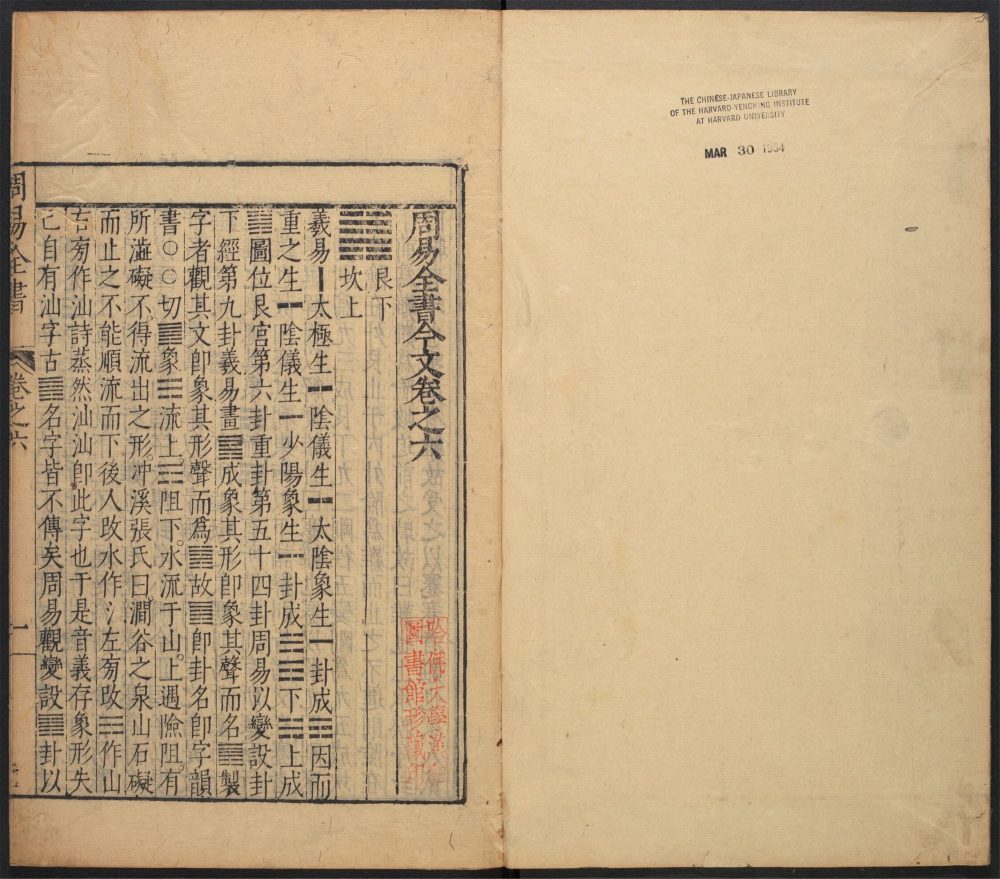 THE CHINESE-JAPANESE LIBRARY
OF THE HARVARD-YENCHING INSTITUTE
AT HARVARD UNIVERSITY
MAR 30 1934
周易全書今文卷之六
䷦艮下
坎上
羲易丨太極生⚋陰儀生⚋太陰象生⚊卦成☶因而
重之生⚋陰儀生⚊少陽象生⚋卦成☵☶下☵上成
䷦圖位艮宮第六卦重卦第五十四卦周易以變設卦
下經第九卦羲易畫䷦成象其形卽象其聲而名䷦製
字者觀其文卽象其形聲而爲䷦故䷦卽卦名卽字韻
書○○切䷦象☵流上☶阻下水流于山上遇險阻有
所澁礙不得流出之形冲溪張氏曰澗谷之泉山石礙
而止之不能順流而下後人改水作氵左旁改☶作山
右旁作汕詩蒸然汕汕卽此字也于是音義存象形失
已自有汕字古䷦名字皆不傳矣周易觀變設䷦卦以
周易全書
卷之六
一
哈佛大學漢和
圖書館珍藏印